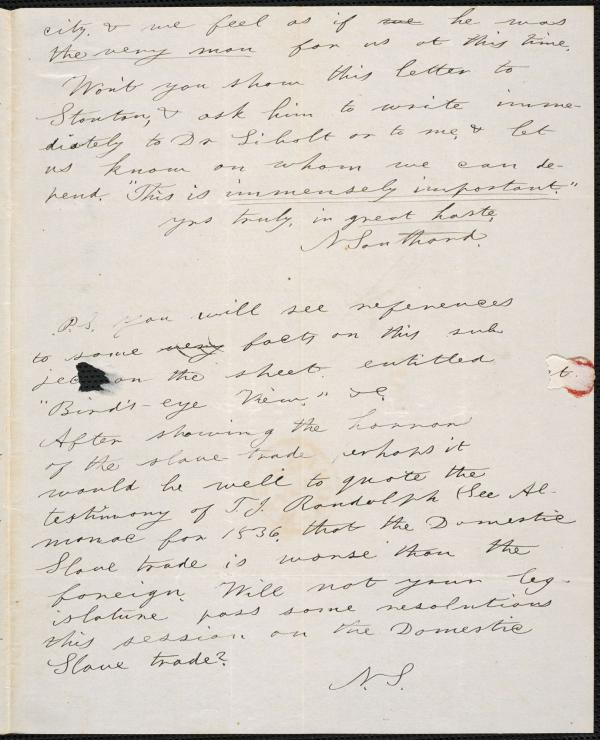 city. & we feel as if we he was
the very man for us at this time.
Won't you show this letter to
Stanton, & ask him to write imme-
diately to Dr Sibolt or to me, & let
us know on whom we can de-
pend. "This is immensely important."
yrs truly, in great haste,
N Southard.
P.S. You will see references
to some very facts on this sub
jec on the sheet entitled
t.
"Bird's-eye View," &c.
After showing the horror
of the slave trade perhaps it
would be well to quote the
testimony of T.J. Randolph (See Al-
manac for 1836, that the Domestic
Slave trade is worse than the
foreign. Will not your leg-
islature pass some resolutions
this session on the Domestic
Slave trade?
N.S.